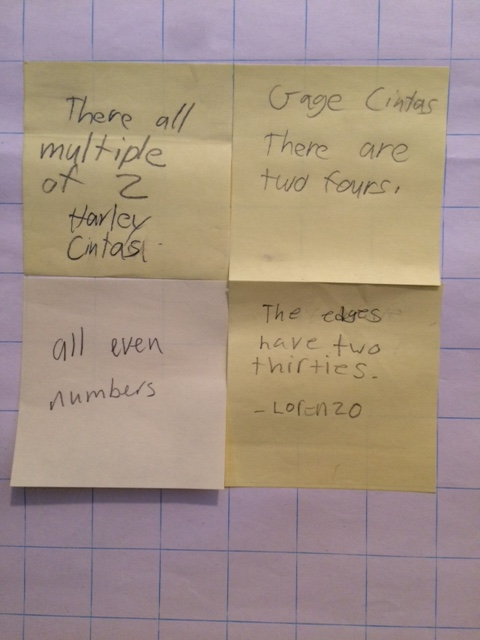 There all
multiple
of 2
Harley
Cintas.
Gage Cintas
There are
two fours.
all even
numbers
The edges
have two
thirties.
- Lorenzo